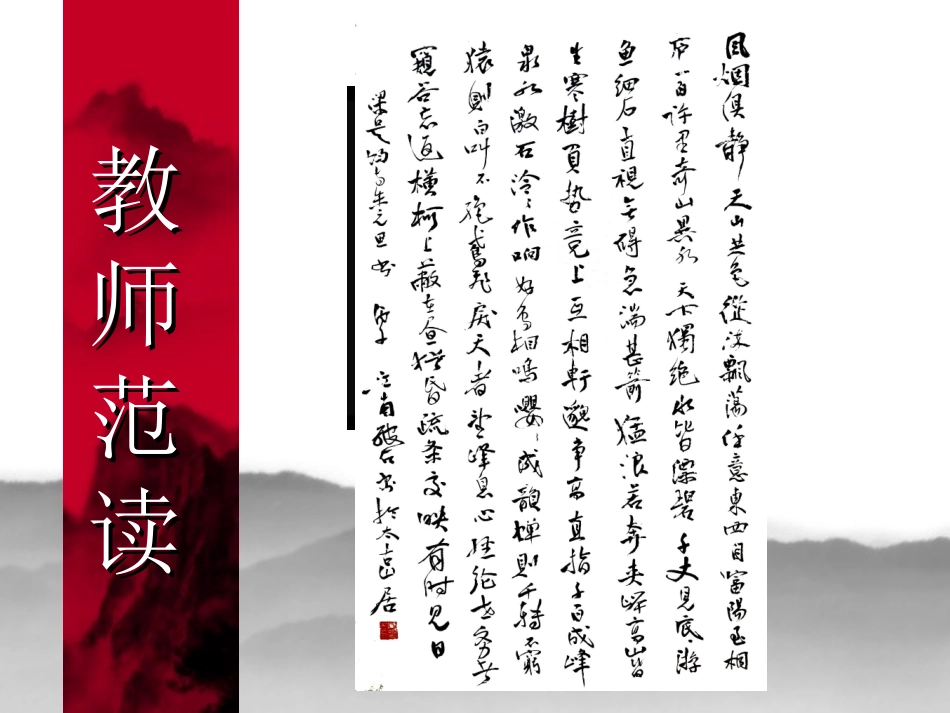 教师范读
風烟俱靜天山共色從流飄蕩任意東西自富陽至桐
庐一百许里奇山異水天下獨绝水皆漂碧千丈見底游
鱼細石直視无碍急湍甚箭猛浪若奔夹岸高山皆
生寒樹負势竞上互相軒邈争高直指千百成峰
泉水激石泠泠作响好鸟相鳴嚶嚶成韻蟬則千轉不窮
猿則百叫不绝鳶飛戾天者望峰息心经纶世务者
窺谷忘返橫柯上蔽在昼犹昏疏条交映有时见日
梁吴均与朱元思书